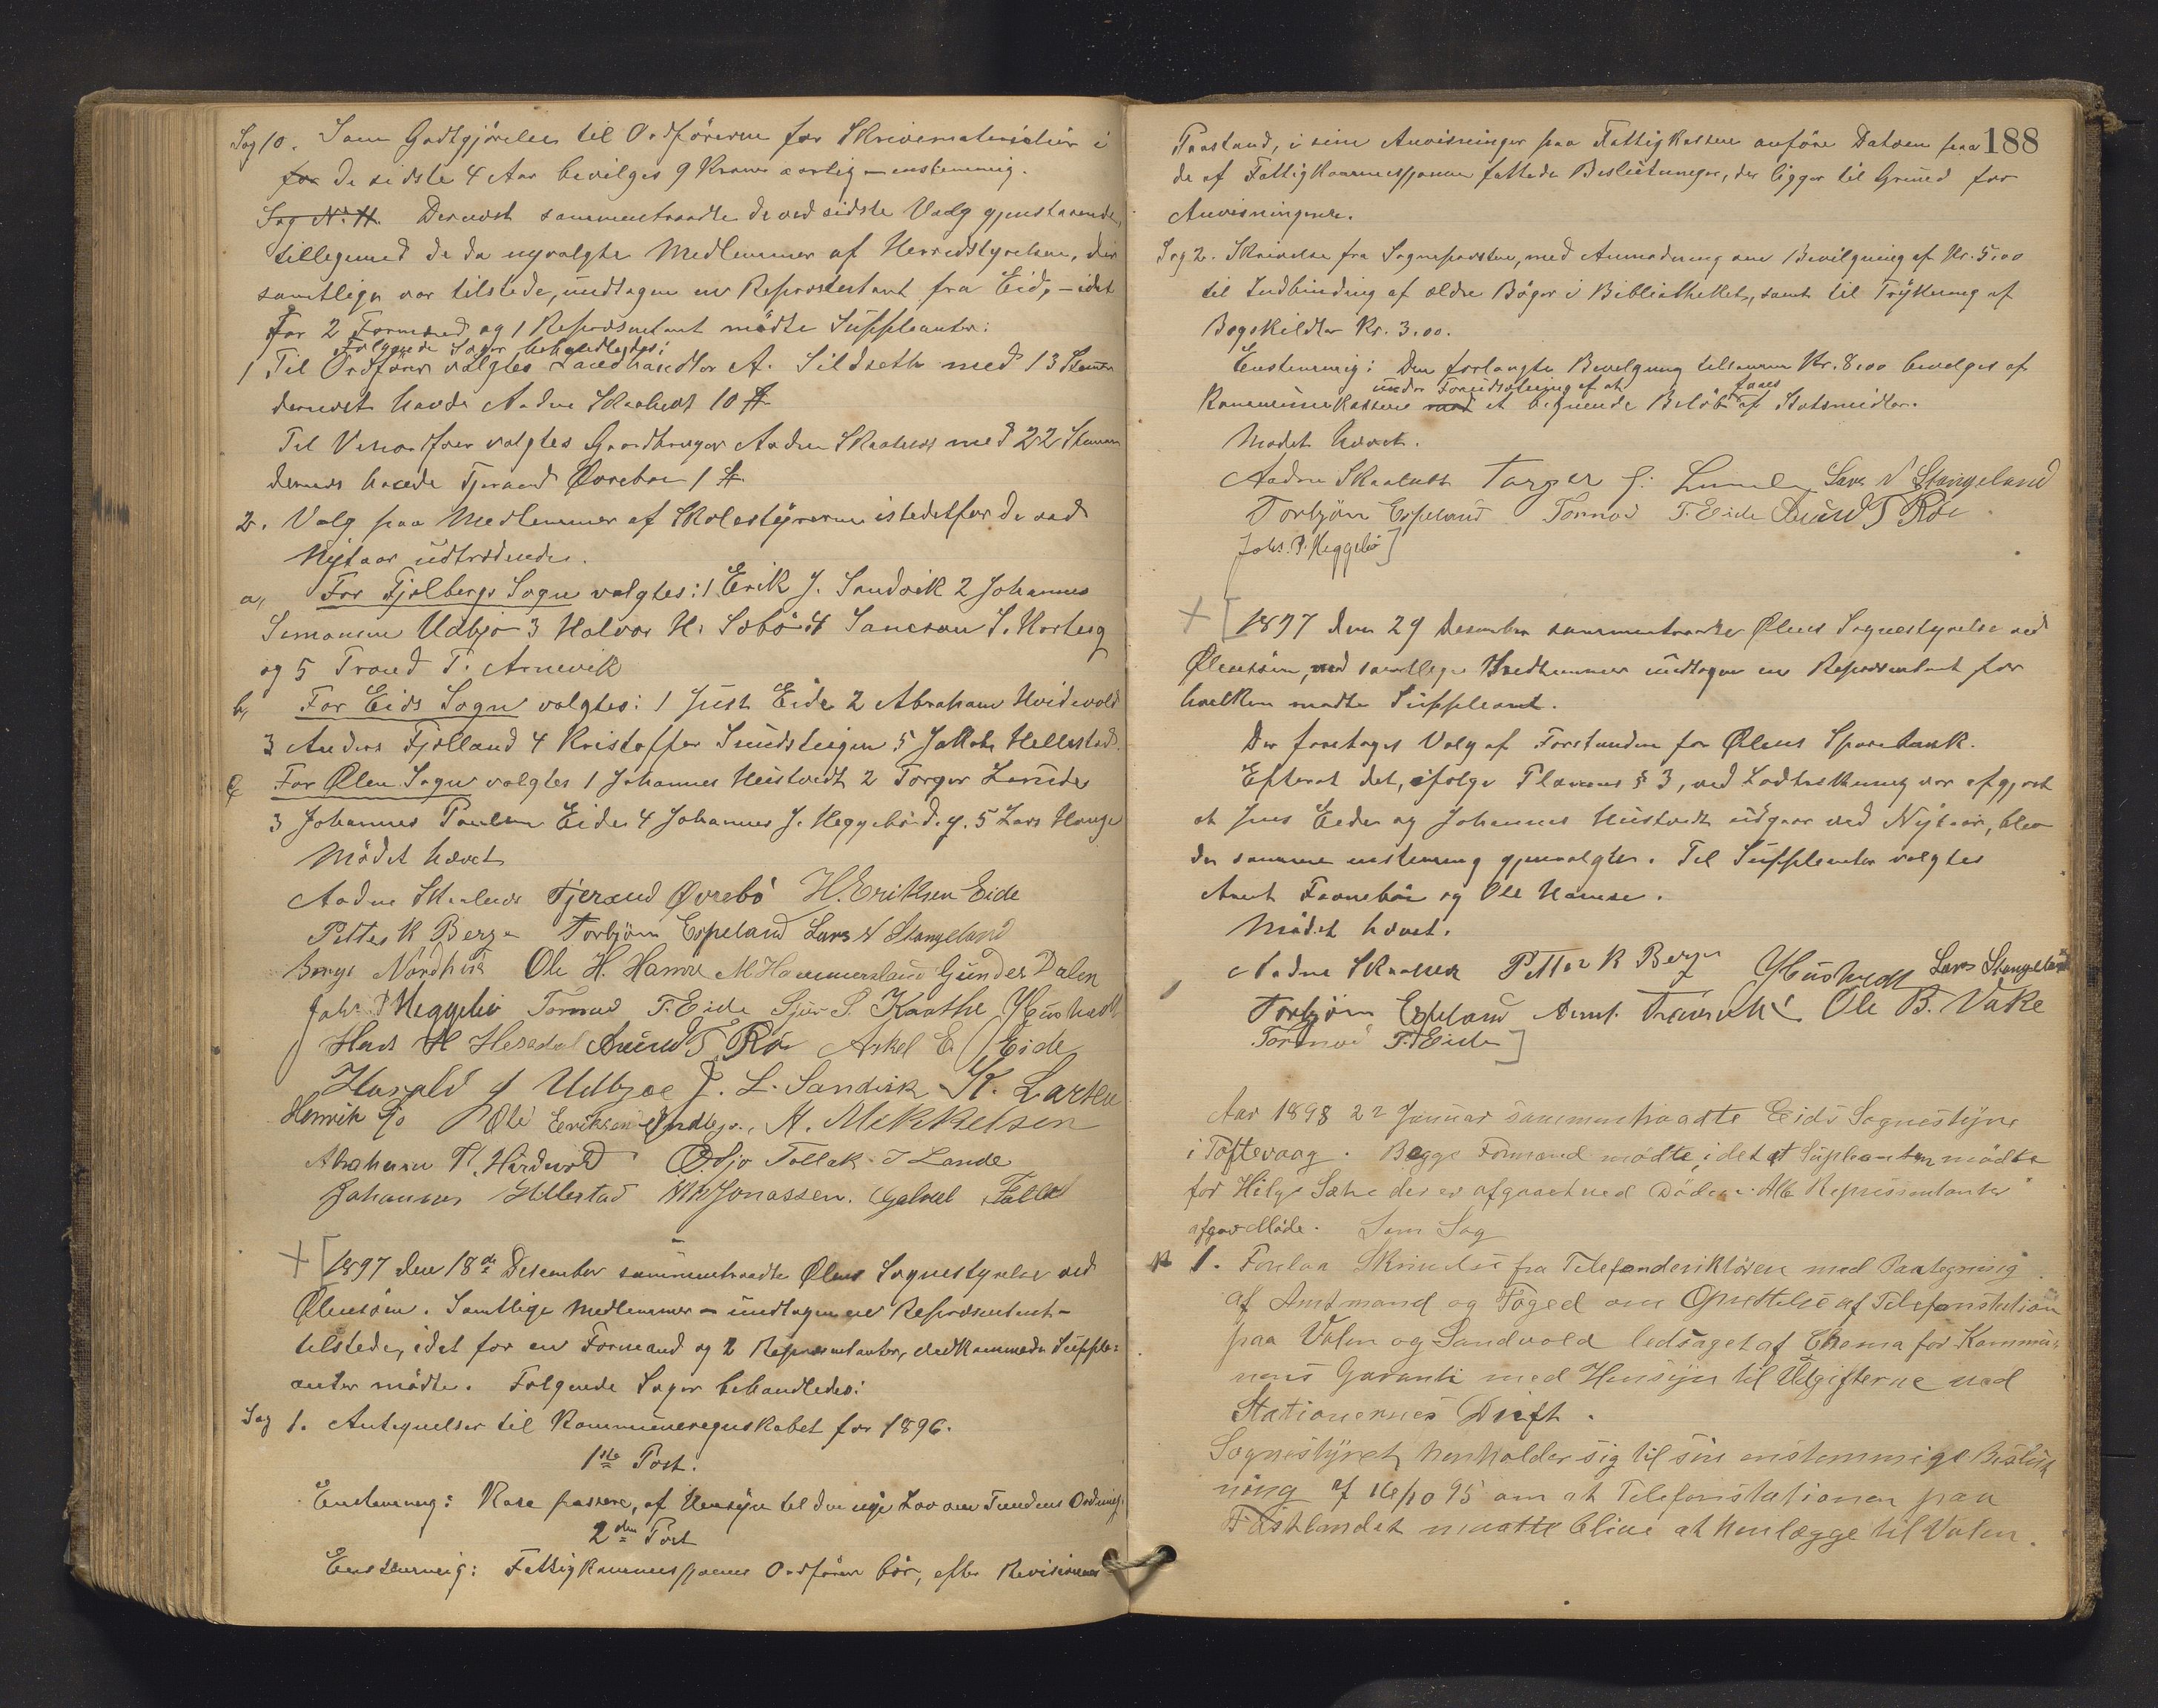 Sag 10. Som Godtgjörelse til Ordföreren for Skrivematerialier i
for de sidste 4 Aar bevilges 9 Kroner aarlig – enstemmig.
Sag No 11. Dernæst sammentraadte de ved sidste Valg gjenstaaende,
tilligemed de da nyvalgte Medlemmer af Herredstyrelsen, der
samtlige var tilstede, undtagen en Repræsentant fra Eid, – idet
for 2 Formænd og 1 Repræsentant mödte Suppleanter:
Fölgende Sager behandledes:
1 Til Ordförer valgtes Landhandler A. Sildseth med 13 Stemmer
dernæst havde Aadne Skaalnes 10 St
Til Viseordförer valgtes Gaardbruger Aadne Skaalnes med 22 Stemmer
dernæst havde Tjerand Øvrebø 1 St
2. Valg paa Medlemmer af Skolestyrerne istedetfor de ved
Nytaar udtrædende.
a, For Fjelbergs Sogn valgtes: 1 Erik J. Sandvik 2 Johannes
Simonsen Udbjo 3 Halvor H. Sæbö 4 S.
og 5 Trond T. Arnevik
b, For Eids Sogn valgtes: 1 Just Eide 2 Abraham Hvidevold
3 Anders Fjelland 4 Kristoffer Sundsteigen 5 Jakob Hellestad
c, For Ølen Sogn valgtes 1 Johannes Hustvedt 2 Torger Lunde
3 Johannes Paulsen Eide 4 Johannes J. Heggebö d. y. 5 Lars Hauge
Mödet hævet
Aadne Skaalnes Tjerand Øvrebö H. Eriksen Eide
Petter K Berge Torbjörn Espeland Lars N Stangeland
Ole H. Hamre M. Hammersland Gunder Dalen
Johs. P Heggebö Tormod T. Eide Sjur S. Kaathe J Hustvedt
Hans H Amund T Rö Askel E Eide
Harald J Udbjoe J. L. Sandvik K. Larsen
Henrik Ole Eriksen A. Mikkelsen
Abraham T. Hvidevold O. Sjo Tollak T Lande
Johannes Hellestad Jonassen. Gabriel
1897 den 18de Desember sammentraadte Ølens Sognestyrelse ved
Ølensöen. Samtlige Medlemmer – undtagen en Repræsentant –
tilstede, idet for en Formand og 2 Repræsentanter, vedkommende Supple-
anter mödte. Fölgende Sager behandledes:
Sag 1. Antegnelser til Kommuneregnskabet for 1896.
1ste Post.
Enstemmig: Kan passere, af Hensyn til den nye Lov om Ordning.
2den Post
Enstemmig: Fattigkommissjonens Ordförer bör, efter Revisionens
188
Paastand, i sine Anvisninger paa Fattigkassen anföre Datoen paa
de af Fattigkommissjonen fattede Beslutninger, der ligger til Grund for
Anvisningerne.
Sag 2. Skrivelse fra Sognepresten, med Anmodning om Bevilgning af Kr. 5.00
til Indbinding af ældre Böger i Bibliotheket, samt til Trykning af
Bogskildter Kr. 3.00.
Enstemmig: Den forlangte Bevilgning tilsammen Kr. 8.00 bevilges af
under Forudsætning af at faaes
Kommunekassen mod et lignende Belöb af Statsmidler.
Mödet hævet.
Aadne Skaalnes Torger J. Lunde Lars N Stangeland
Torbjörn Espeland Tormod T. Eide Amund T Rö
Johs. P. Heggebö
1897 den 29 Desember sammentraadte Ølens Sognestyrelse ved
Ølensöen, med samtlige Medlemmer undtagen en Repræsentant for
hvilken mödte Suppleant.
Der foretoges Valg af Forstandere for Ølens Sparebank.
Efterat det, ifölge Planens § 3, ved Lodtrækning var afgjort
at Jens Eide og Johannes Hustvedt udgaar ved Nytaar, blev
de samme enstemmig gjenvalgte. Til Suppleanter valgtes
Amt og Ole Hamre.
Mödet hævet.
Aadne Skaalnes Petter K Berge J Hustvedt Lars Stangeland
Torbjörn Espeland Ole B. Vake
Tormod T. Eide
Aar 1898 22 Januar sammentraadte Eids Sognestyre
i Toftevaag. Begge Formænd mödte, idet at Supleanten mödte
for Helge Sæthe der er afgaaet ved Döden. Alle Repræsentanter
afgav Möde. Som Sag
1. Forelaa Skrivelse fra Telefondirektören med Paategning
af Amtmand og Foged om Oprettelse af Telefonstation
paa Valen og Sandvold ledsaget af Chema for Kommu-
nens Garanti med Hensyn til Udgifterne ved
Stationernes Drift.
Sognestyret henholder sig til sin enstemmige Beslut
ning af 16/10 95 om at Telefonstationen paa
Fastlandet maatte blive at henlægge til Valen.